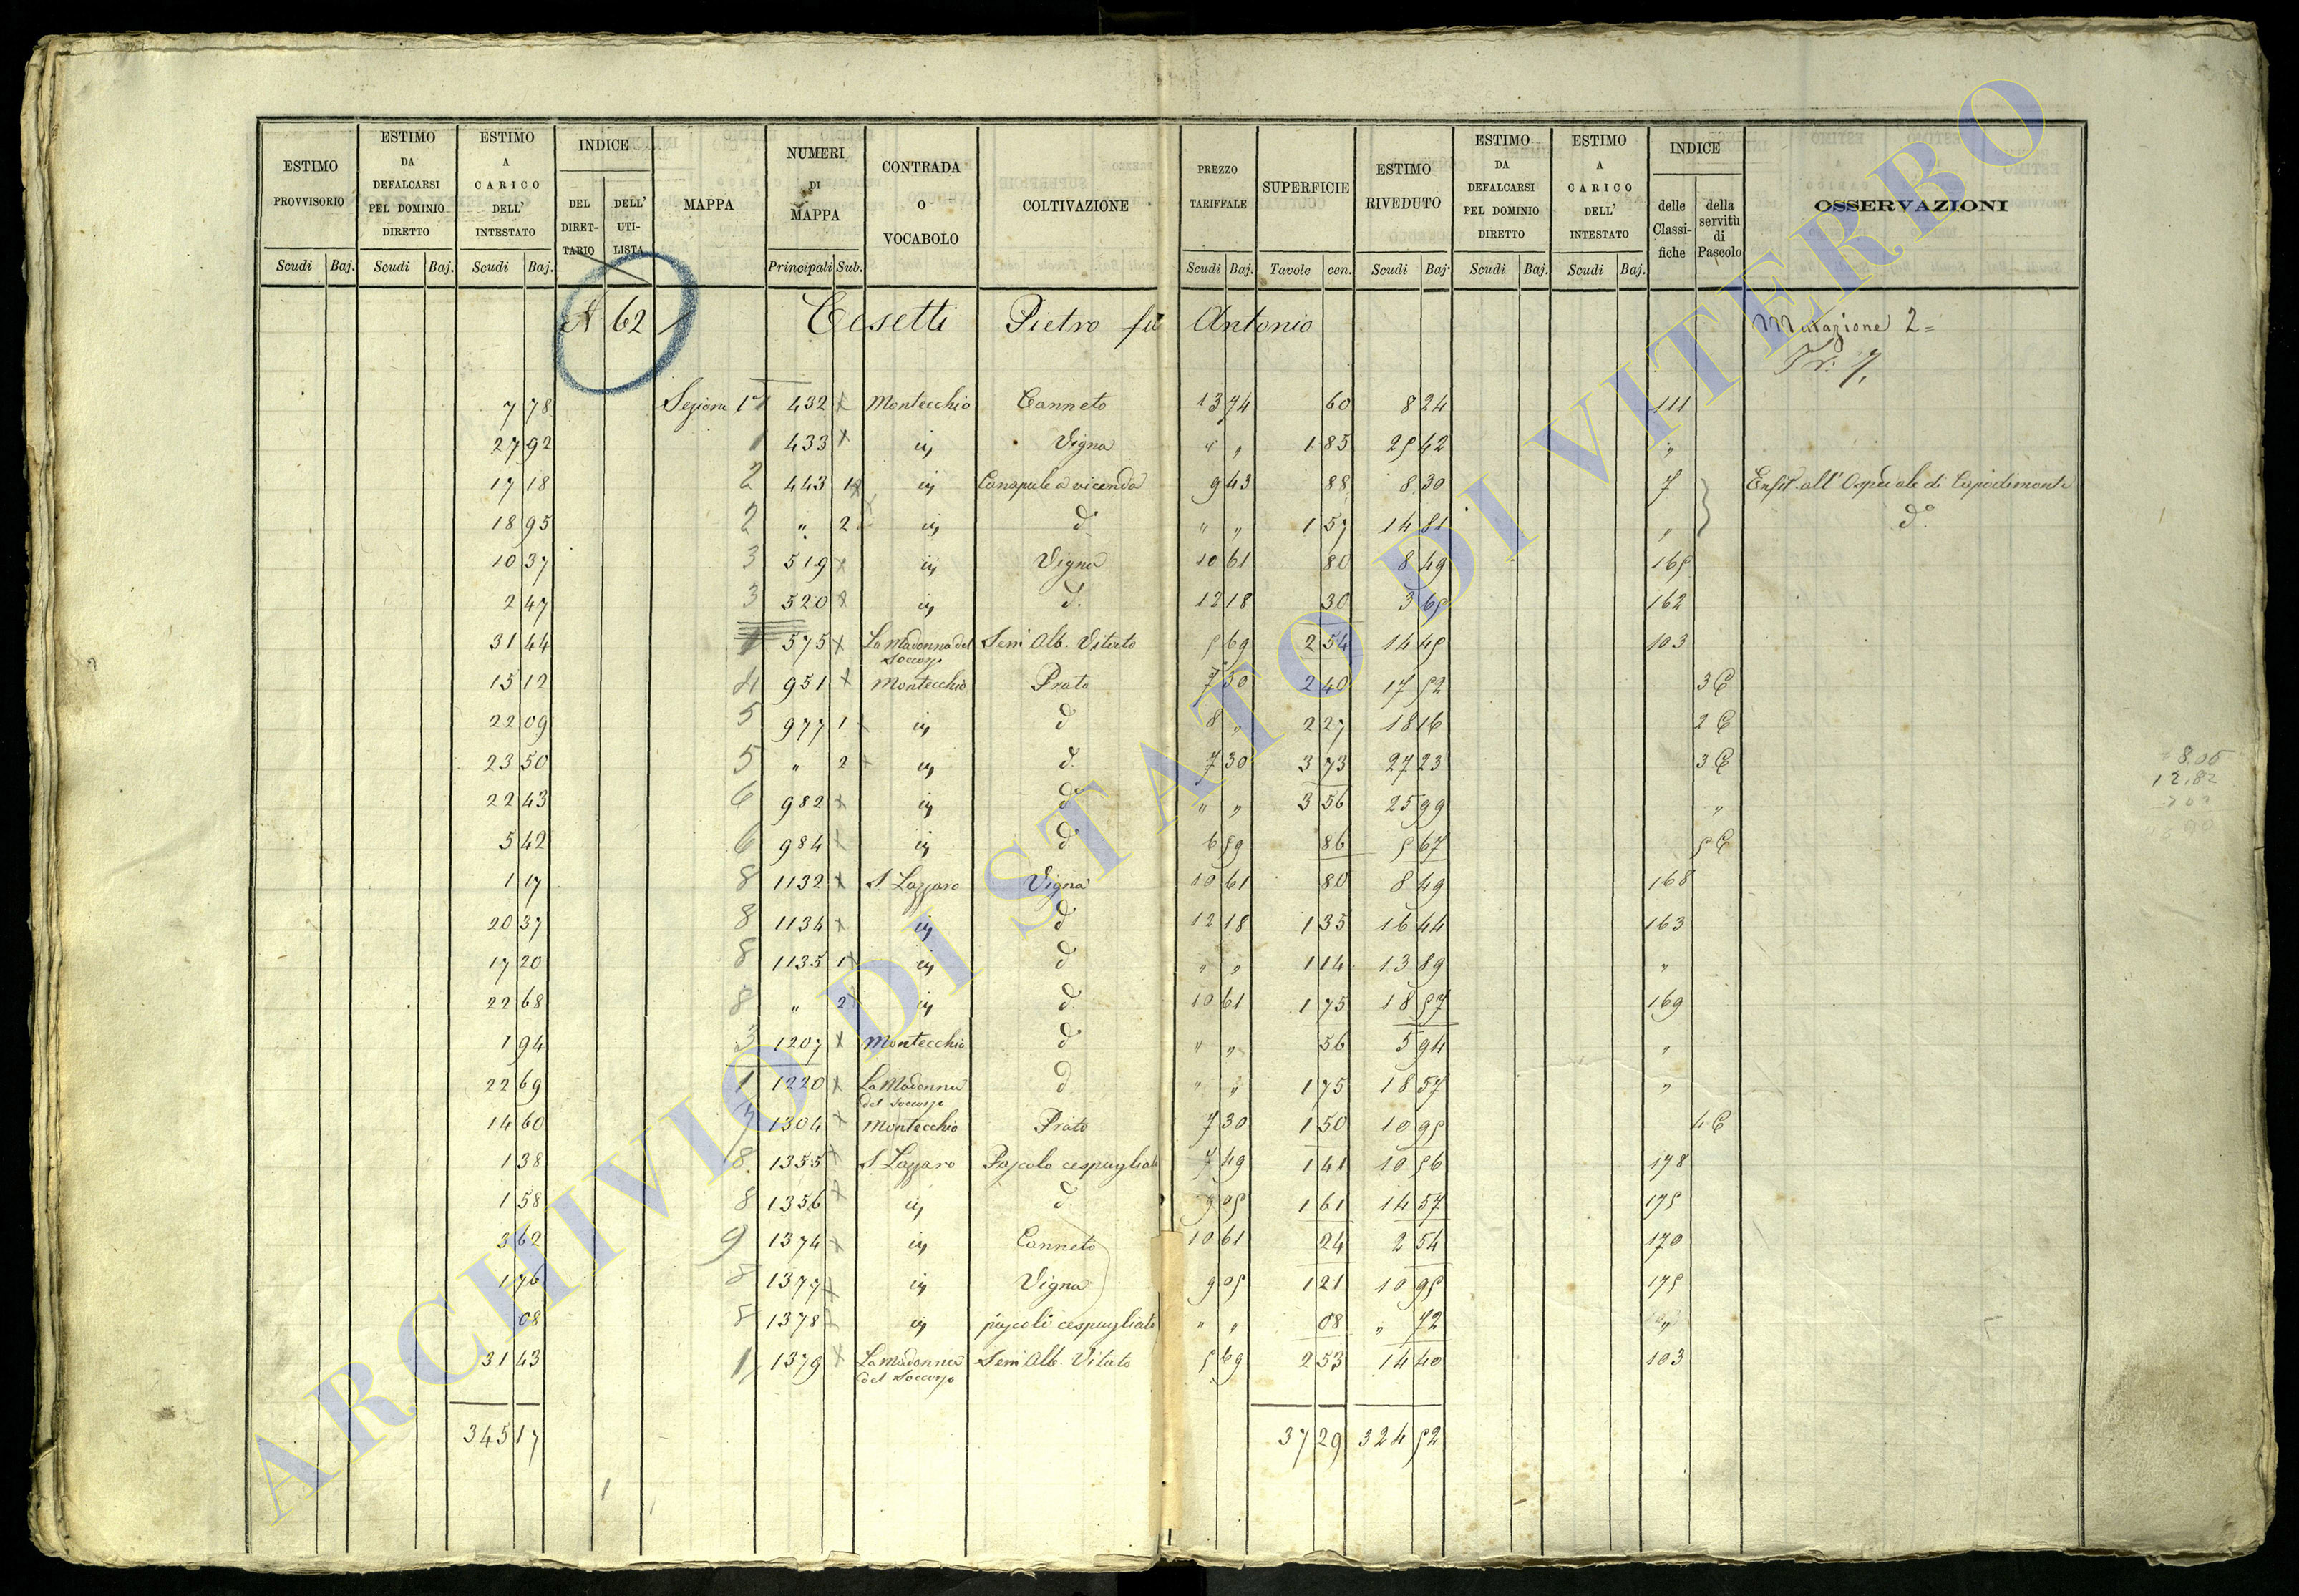 ESTIMO PROVVISORIO Scudi Baj.
ESTIMO DA DEFALCARSI PEL DOMINIO DIRETTO Scudi Baj.
ESTIMO A CARICO DELL' INTESTATO Scudi Baj.
INDICE DEL DIRET-TARIO DELL' UTI-LISTA
MAPPA
NUMERI DI MAPPA Principali Sub.
CONTRADA O VOCABOLO
COLTIVAZIONE
PREZZO TARIFFALE Scudi Baj.
SUPERFICIE Tavole cen.
ESTIMO RIVEDUTO Scudi Baj.
ESTIMO DA DEFALCARSI PEL DOMINIO DIRETTO Scudi Baj.
ESTIMO A CARICO DELL' INTESTATO Scudi Baj.
INDICE delle Classi-fiche della servitù di Pascolo
OSSERVAZIONI
62 Cesetti Pietro fu Antonio Mutazione 2=
7 78 Sezione 1ª 432 Montecchio Canneto 13 74 60 8 24 111
27 92 1 433 " Vigna " " 1 85 25 42 "
17 18 2 443 1 " Canapule a vicenda 9 43 88 8 30 7 Enfit. all'Ospedale di Capodimonte
18 95 2 " 2 " d° " " 1 57 14 81 " d°
10 37 3 519 " Vigna 10 61 80 8 49 165
2 47 3 520 " d. 12 18 30 3 65 162
31 44 1 575 La Madonna del Soccorso Sem Alb. Vitato 5 69 2 54 14 45 103
15 12 4 951 Montecchio Prato 7 30 2 40 17 52 3 C
22 09 5 977 1 " d 8 " 2 27 18 16 2 C
23 50 5 " 2 " d. 7 30 3 73 27 23 3 C
22 43 6 982 " d° " " 3 56 25 99 "
5 42 6 984 " d 6 59 86 5 67 5 C
1 17 8 1132 S Lazzaro Vigna 10 61 80 8 49 168
20 37 8 1134 " d 12 18 1 35 16 44 163
17 20 8 1135 1 " d " " 1 14 13 89 "
22 68 8 " 2 " d. 10 61 1 75 18 57 169
1 94 3 1207 Montecchio d " " 56 5 94 "
22 69 1 1220 La Madonna del Soccorso d " " 1 75 18 57 "
14 60 7 1304 Montecchio Prato 7 30 1 50 10 95 4 C
1 38 8 1355 S Lazzaro Pascolo cespugliato 7 49 1 41 10 56 178
1 58 8 1356 " d. 9 05 1 61 14 57 175
3 62 9 1374 " Canneto 10 61 24 2 54 170
1 76 8 1377 " Vigna 9 05 1 21 10 95 175
08 8 1378 " pascoli cespugliato " " 08 " 72 "
31 43 1 1379 La Madonna del Soccorso Sem Alb. Vitato 5 69 2 53 14 40 103
345 17 37 29 324 52
8.05
12.82
ARCHIVIO DI STATO DI VITERBO